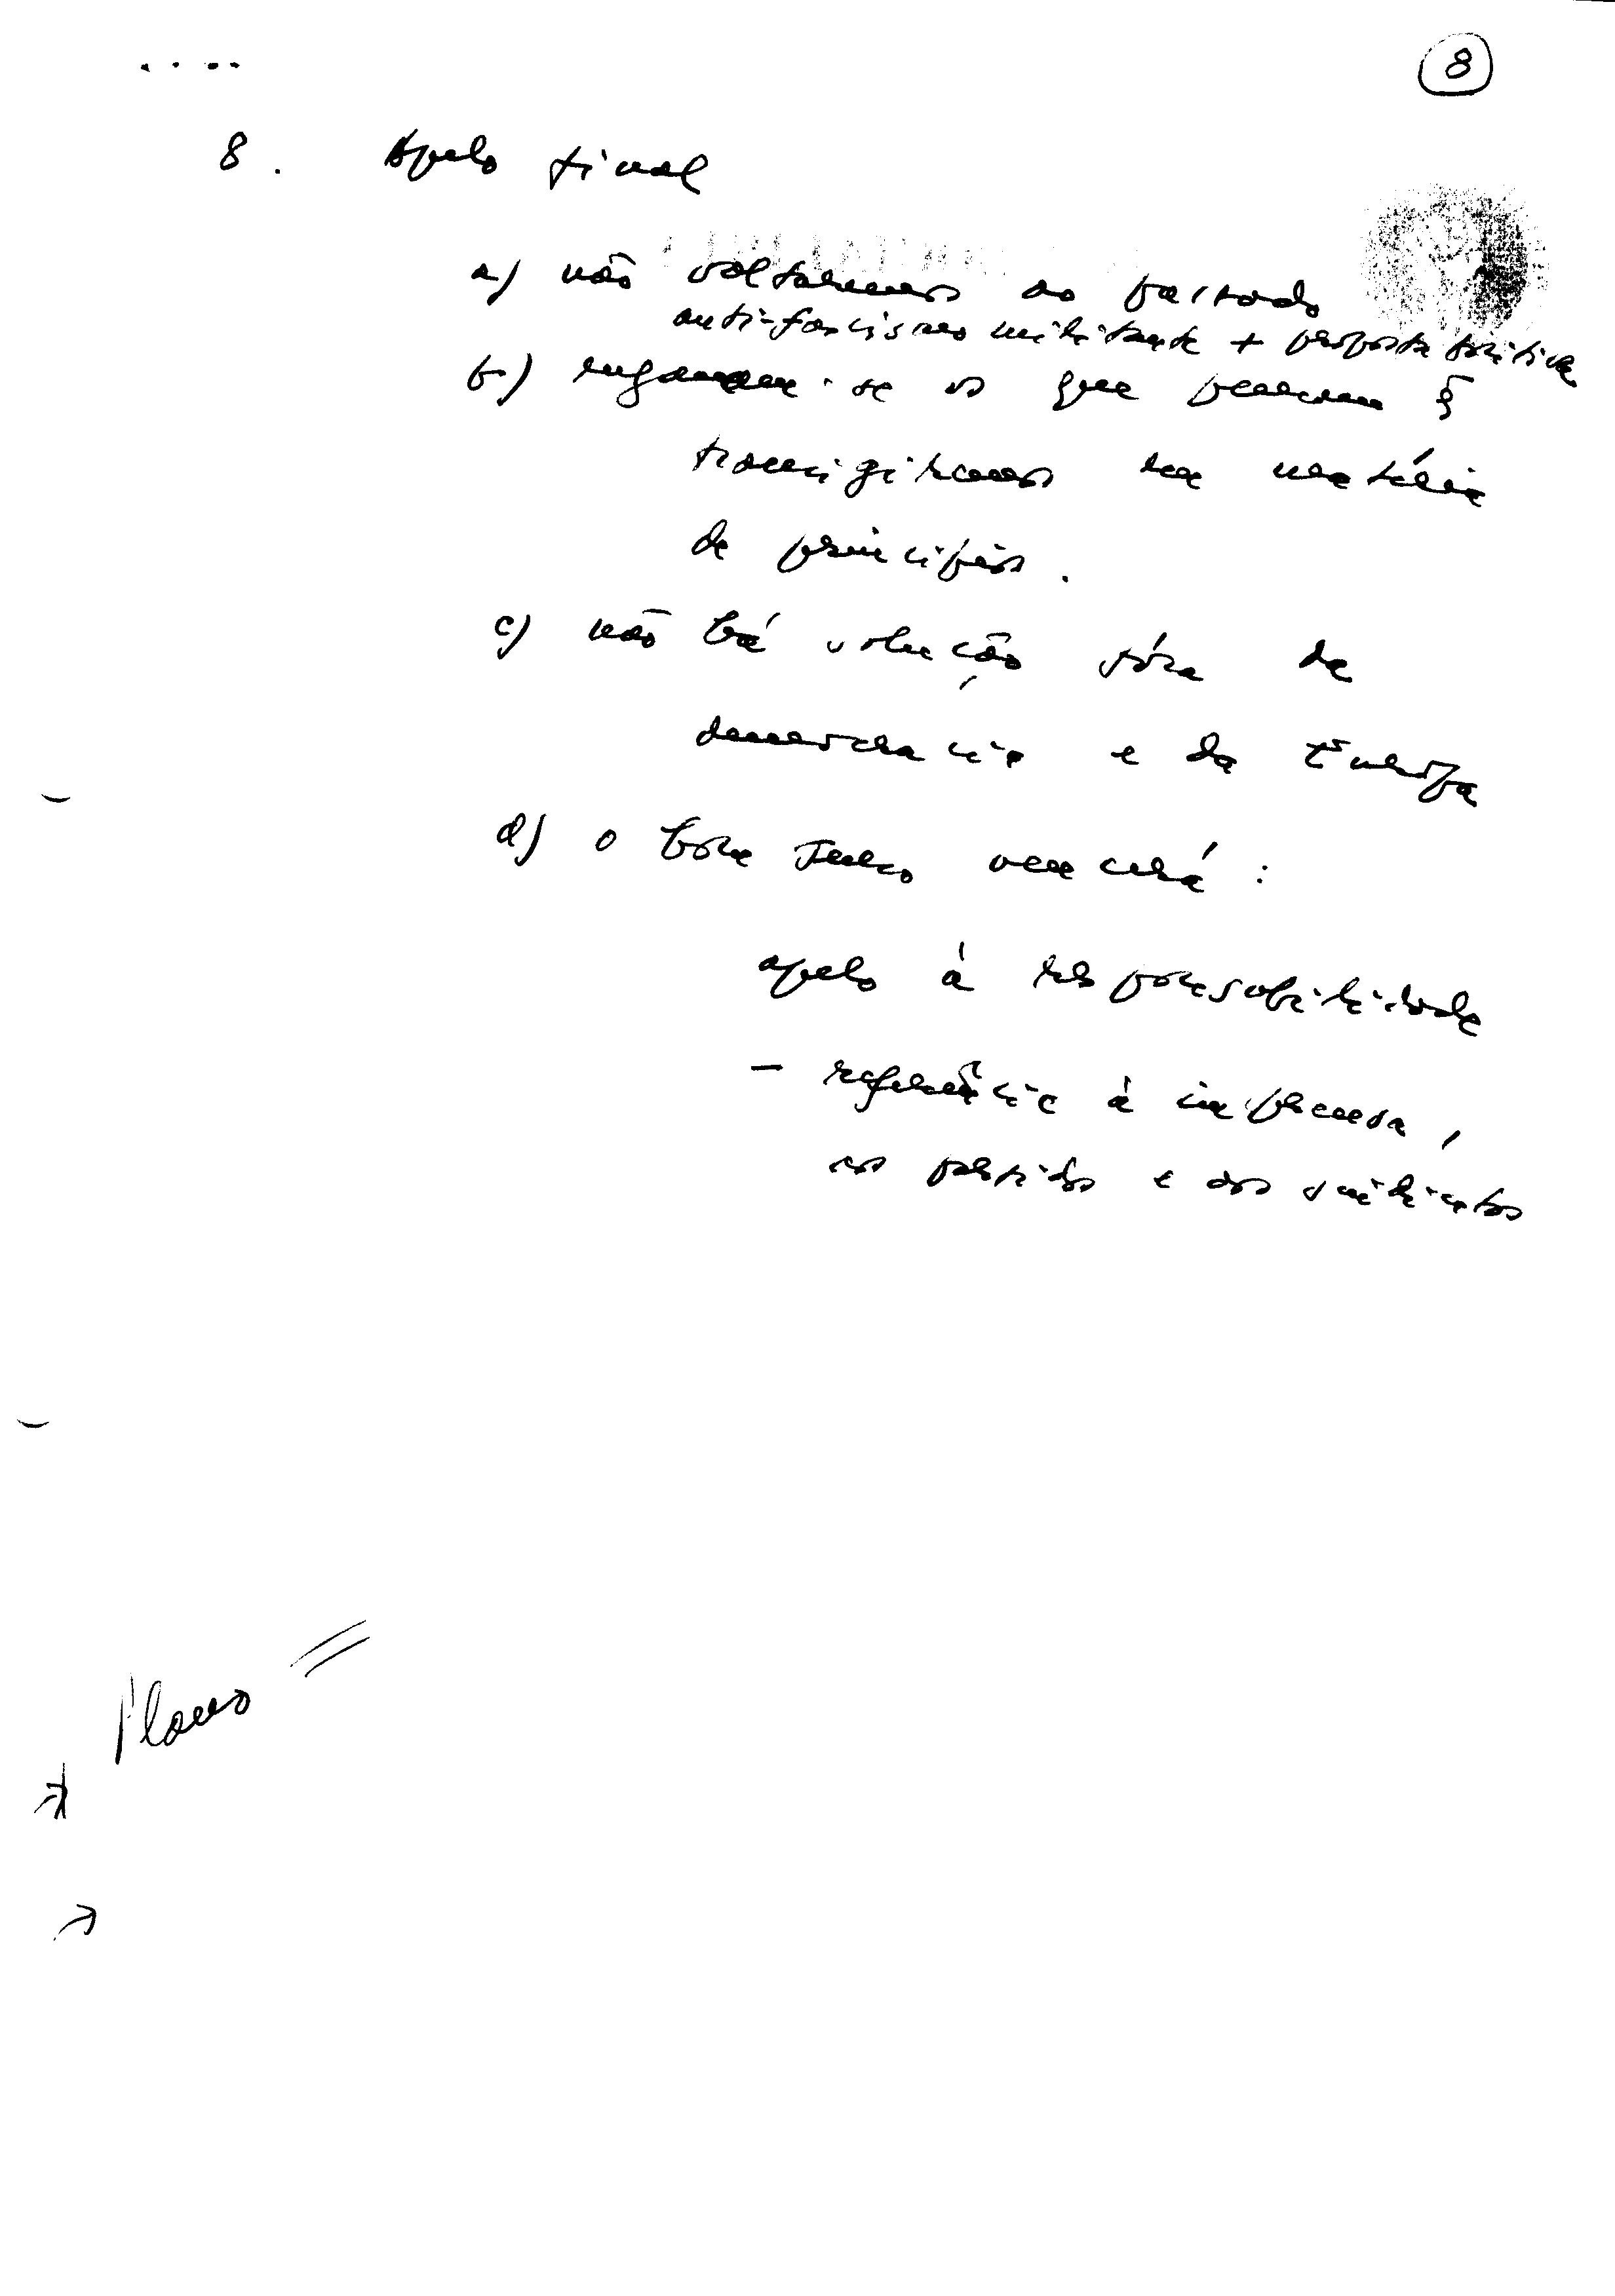 8
8. Apelo final
a) não voltaremos ao passado
anti-fascismo militante + proposta
b) enganam-se os que pensam q
transigiremos em matéria
de princípios.
c) não há solução fóra da
democracia e da Europa
d) o bom senso vencerá :
apelo à responsabilidade
- referência à imprensa,
aos partidos e aos sindicatos
Plano